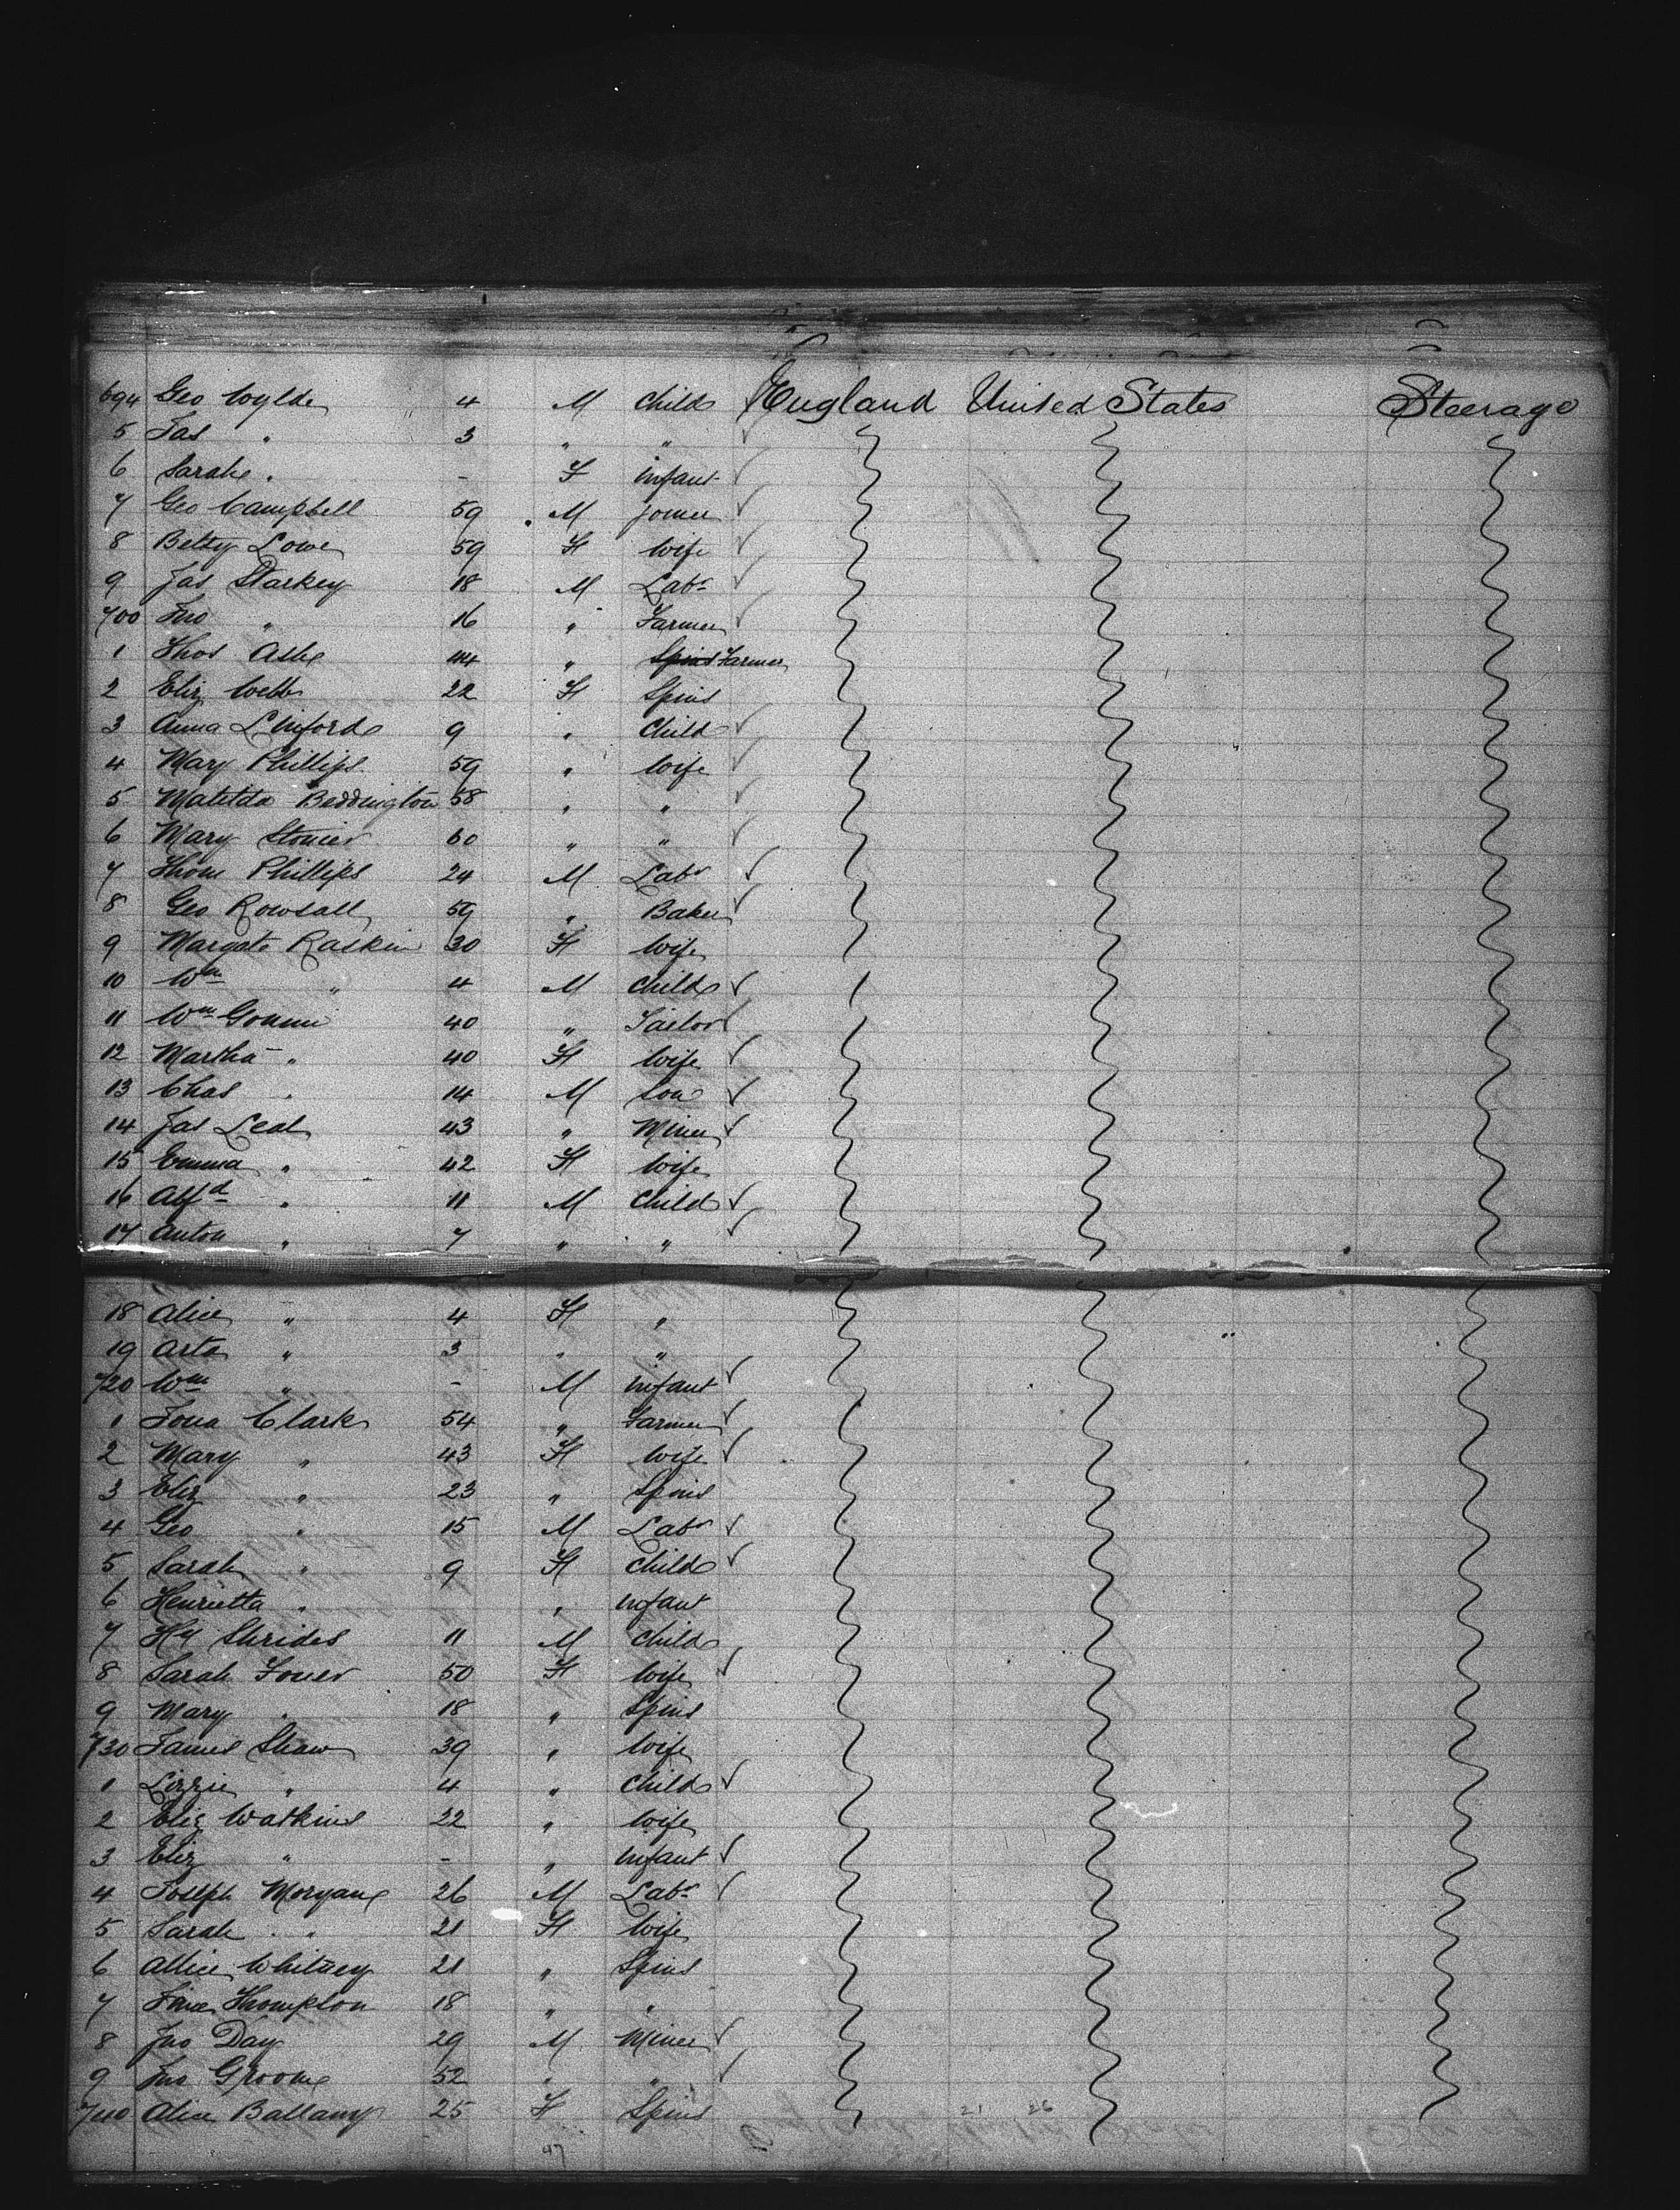 694 Geo Wylde 4 M Child England United States Steerage
5 Jas " 3 " "
6 Sarah " - F infant
7 Geo Campbell 59 M Joiner
8 Betsy Lowe 59 F Wife
9 Jas Starkey 18 M Labr
700 Jno " 16 " Farmer
1 Thos Ashe 44 " Spins Farmer
2 Eliz Webb 22 F Spins
3 Anna Linford 9 " Child
4 Mary Phillips 59 " Wife
5 Matilda Beddington 58 " "
6 Mary Stonier 60 " "
7 Thom Phillips 24 M Labr
8 Geo Rowsall 59 " Baker
9 Margate Raskin 30 F Wife
10 Wm " 4 M Child
11 Wm 40 " Tailor
12 Martha " 40 F Wife
13 Chas " 14 M Son
14 Jas Leal 43 " Miner
15 Emma " 42 F Wife
16 Alfd " 11 M Child
17 Anton " 7 " "
18 Alice " 4 F "
19 Arta " 3 " "
720 Wm " - M infant
1 Jona Clark 54 " Farmer
2 Mary " 43 F Wife
3 Eliz " 23 " Spins
4 Geo " 15 M Labr
5 Sarah " 9 F Child
6 Henrietta " " infant
7 Hy Shrides 11 M Child
8 Sarah 50 F Wife
9 Mary " 18 " Spins
730 James Shaw 39 " Wife
1 Lizzie " 4 " Child
2 Eliz Watkins 22 " Wife
3 Eliz " - " infant
4 Joseph Morgan 26 M Labr
5 Sarah " 21 F Wife
6 Allice Whitney 21 " Spins
7 Thompson 18 " "
8 Jno Day 29 M Miner
9 Jno Groome 52 " "
740 Alice Ballamy 25 F Spins
21 26
47